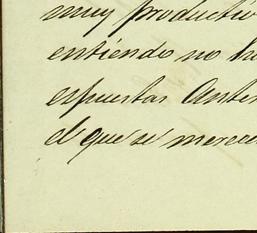 muy productiv
entiendo no ha
espuestas Anter
el que se merece